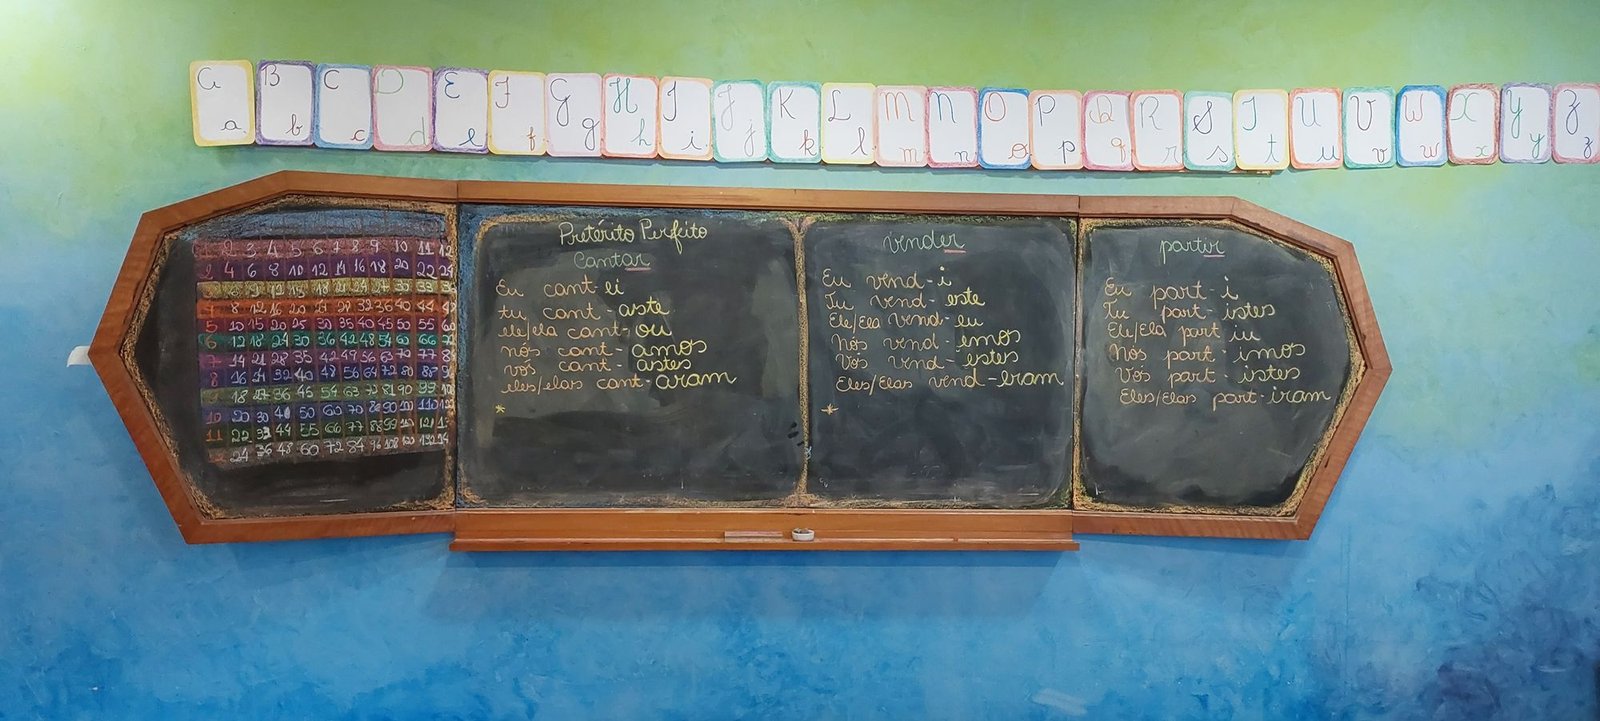 a B C D E F G H I J K L M N O P Q R S T U V W X Y Z
a b c d e f g h i j k l m n o p q r s t u v w x y z
2 3 4 5 6 7 8 9 10 11 12
2 4 6 8 10 12 14 16 18 20 22 24
6 9 12 15 18 21 24 27 30 33
8 12 16 20 24 28 32 36 40 44
5 10 15 20 25 30 35 40 45 50 55 60
6 12 18 24 30 36 42 48 54 60 66
7 14 21 28 35 42 49 56 63 70 77
8 16 24 32 40 48 56 64 72 80 88
18 27 36 45 54 63 72 81 90 99
10 20 30 40 50 60 70 80 90 100 110
11 22 33 44 55 66 77 88 99 121
24 36 48 60 72 84 96 108 120 132
Pretérito Perfeito
Cantar
Eu cant-ei
tu cant-aste
ele/ela cant-ou
nós cant-amos
vós cant-astes
eles/elas cant-aram
*
vender
Eu vend-i
Tu vend-este
Ele/Ela vend-eu
Nós vend-emos
Vós vend-estes
Eles/Elas vend-eram
*
partir
Eu part-i
Tu part-istes
Ele/Ela part iu
Nós part-imos
Vós part-istes
Eles/Elas part-iram